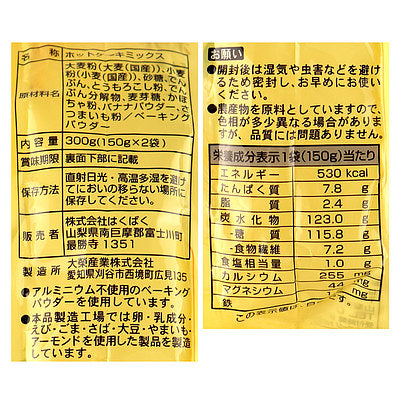 名称 ホットケーキミックス
原材料名 大麦粉(大麦(国産))、小麦
粉(小麦(国産))、砂糖、でん
ぷん、とうもろこし粉、でん
ぷん分解物、麦芽糖、かぼ
ちゃ粉、バナナパウダー、さ
つまいも粉/ベーキング
パウダー
内容量 300g(150g×2袋)
賞味期限 裏面下部に記載
保存方法 直射日光・高温多湿を避け
てにおいの移らない場所に
保存してください。
販売者 株式会社はくばく
山梨県南巨摩郡富士川町
最勝寺1351
製造所 大榮産業株式会社
愛知県刈谷市西境町広見135
●アルミニウム不使用のベーキング
パウダーを使用しています。
●本品製造工場では卵・乳成分・
えび・ごま・さば・大豆・やまいも・
アーモンドを使用した製品を製造
しています。
お願い
●開封後は湿気や虫害などを避け
るため密封し、お早めにお使い
ください。
●農産物を原料としていますので、
色相が多少異なる場合があります
が、品質には問題ありません。
栄養成分表示1袋(150g)当たり
エネルギー 530 kcal
たんぱく質 7.8 g
脂質 2.4 g
炭水化物 123.0 g
-糖質 115.8 g
-食物繊維 7.2 g
食塩相当量 1.0 g
カルシウム 255 mg
マグネシウム 44 mg
鉄 mg
この表示値は、